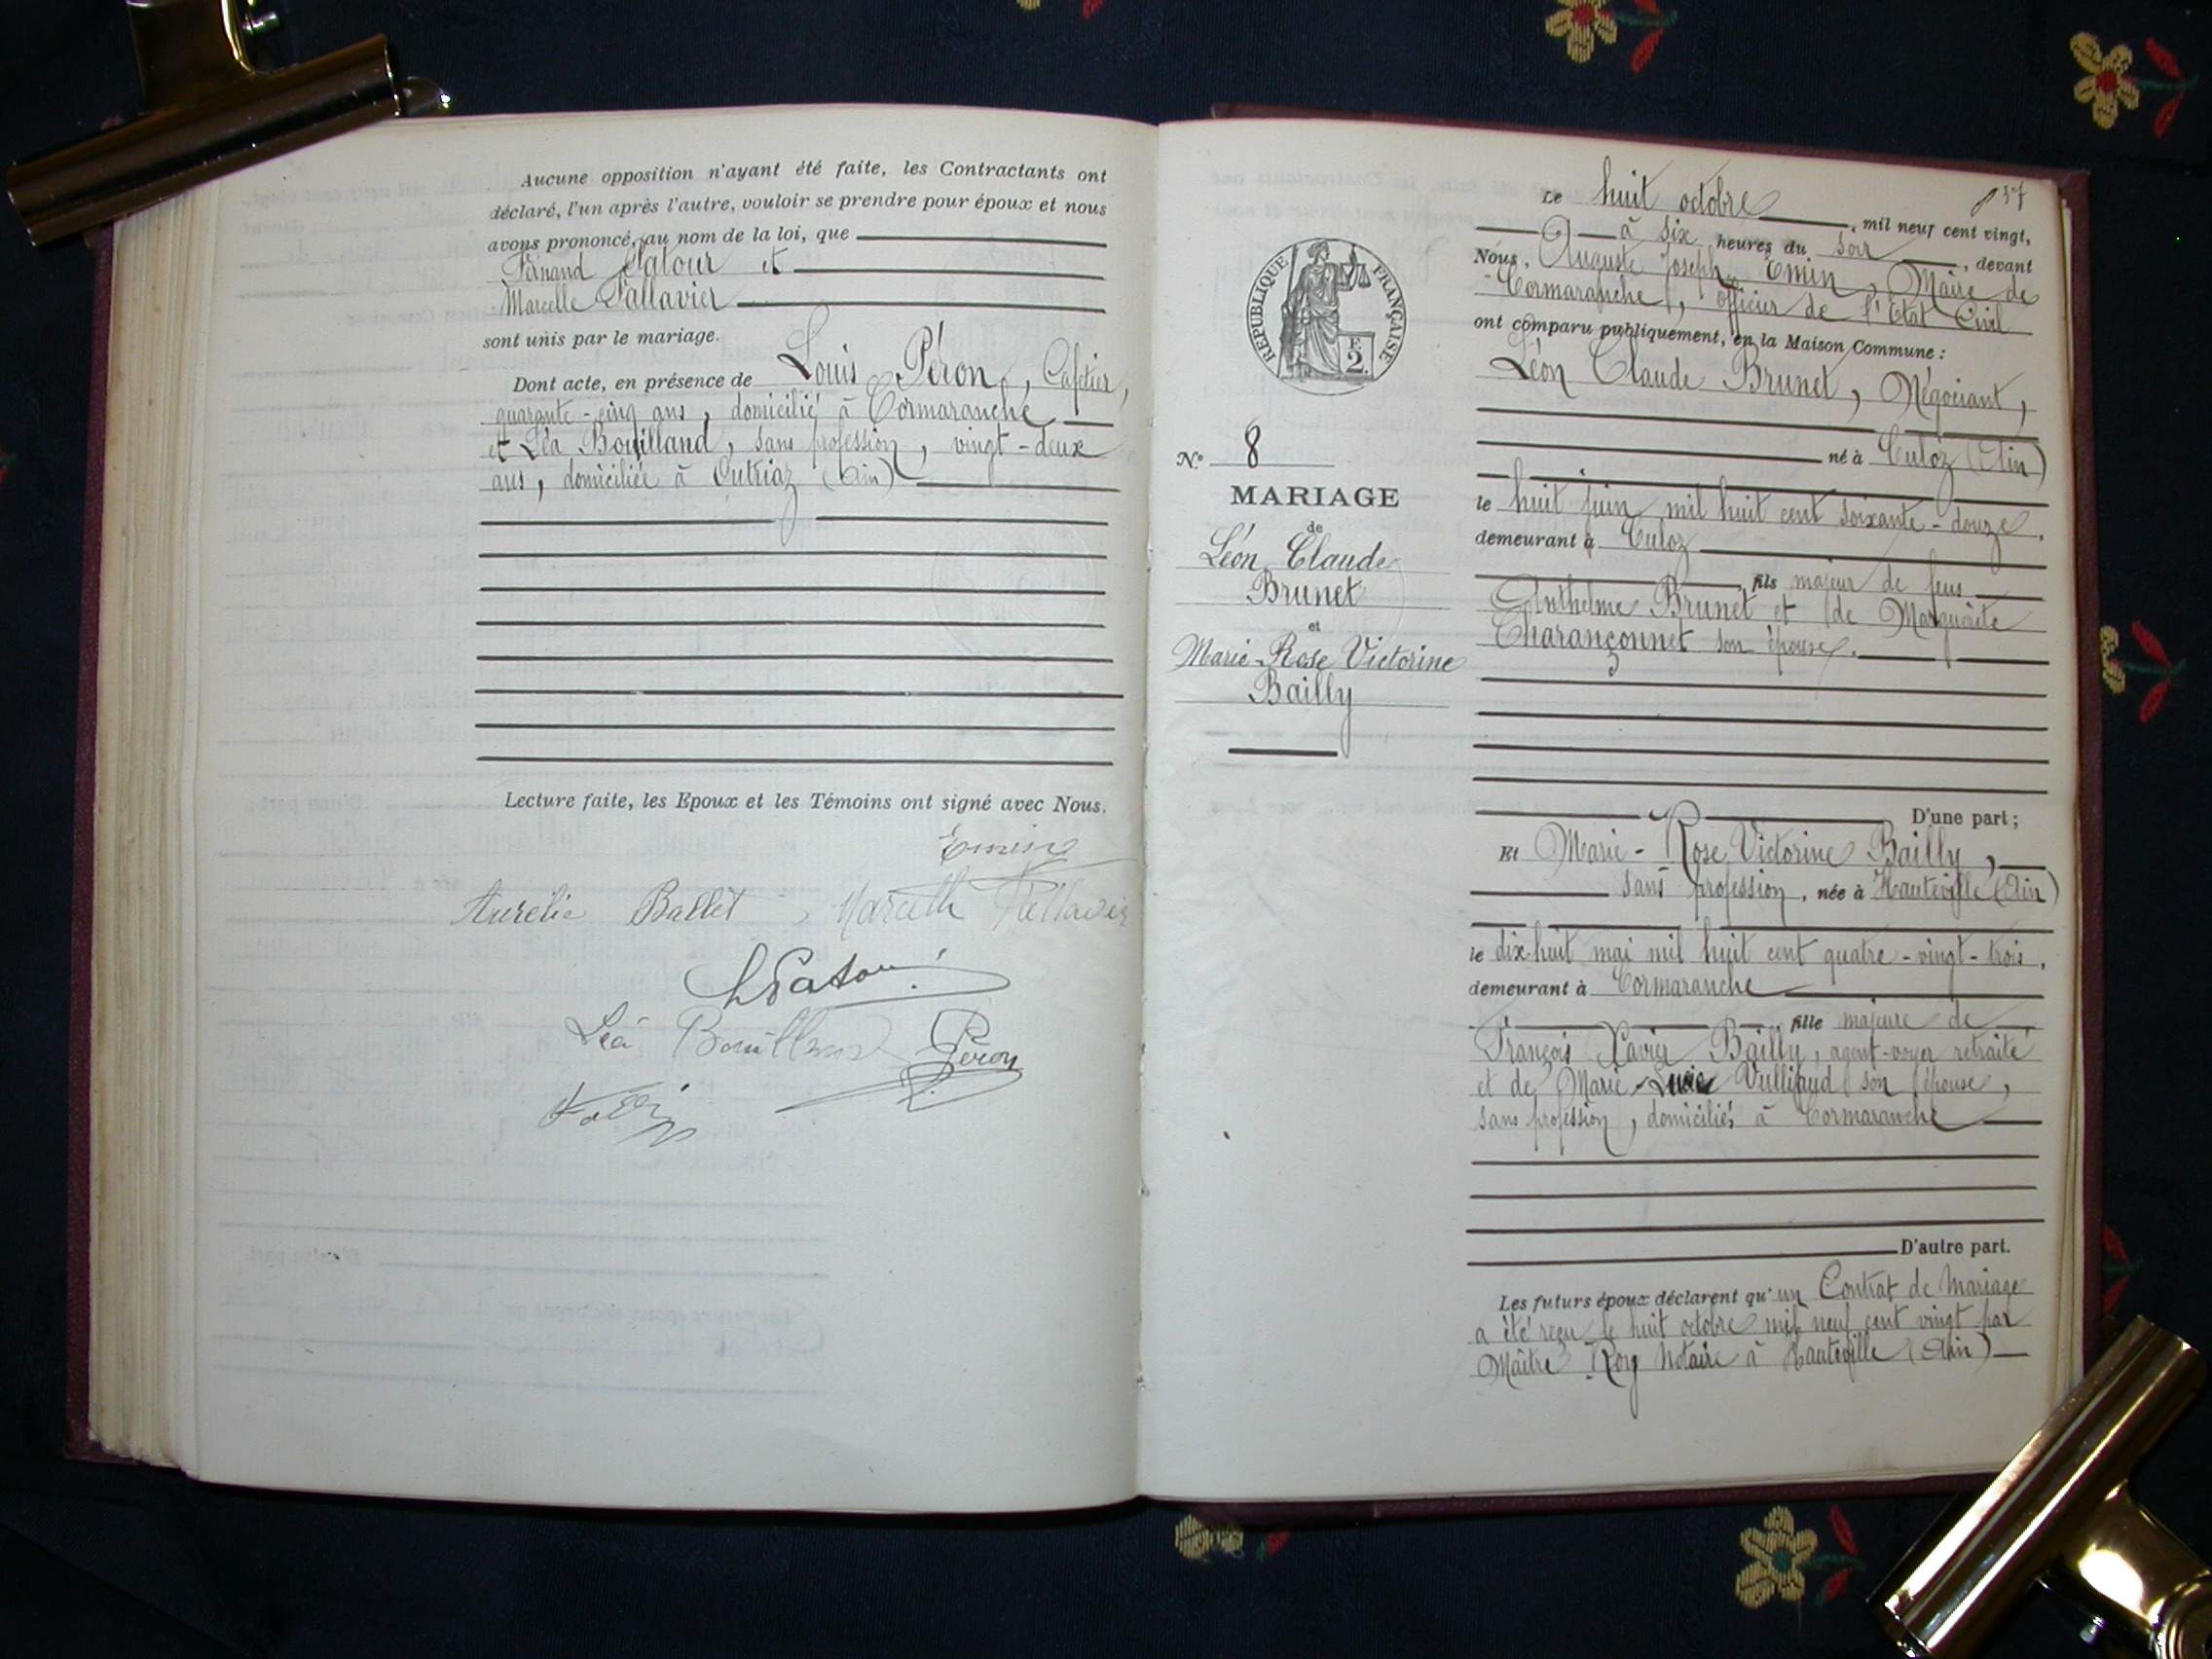 Aucune opposition n'ayant été faite, les Contractants ont
déclaré, l'un après l'autre, vouloir se prendre pour époux et nous
avons prononcé, au nom de la loi, que
Fernand Latour et
Marcelle Pallavier
sont unis par le mariage.
Dont acte, en présence de Louis Péron, Cafetier,
quarante-cinq ans, domicilié à Cormaranche
et Léa Bouilland, sans profession, vingt-deux
ans, domiciliée à Outriaz (Ain)
Lecture faite, les Epoux et les Témoins ont signé avec Nous.
Emin
Aurélie Ballet
Léa Péron
RÉPUBLIQUE FRANÇAISE
F.
2.
N° 8
MARIAGE
de
Léon Claude
Brunet
et
Marie-Rose Victorine
Bailly
37
Le huit octobre, mil neuf cent vingt,
à six heures du soir, devant
Nous, Auguste Joseph Emin, Maire de
Cormaranche, officier de l'Etat Civil
ont comparu publiquement, en la Maison Commune :
Léon Claude Brunet, Négociant,
né à Culoz (Ain)
le huit juin mil huit cent soixante-douze,
demeurant à Culoz
fils majeur de feus
Anthelme Brunet et de Marguerite
Charançonnet son épouse.
D'une part ;
Et Marie-Rose Victorine Bailly,
sans profession, née à Hauteville (Ain)
le dix-huit mai mil huit cent quatre-vingt-trois,
demeurant à Cormaranche
fille majeure de
François Xavier Bailly, agent-voyer retraité
et de Marie Vulliaud son épouse,
sans profession, domiciliés à Cormaranche
D'autre part.
Les futurs époux déclarent qu'un Contrat de Mariage
a été reçu le huit octobre mil neuf cent vingt par
Maître Roy Notaire à Hauteville (Ain)